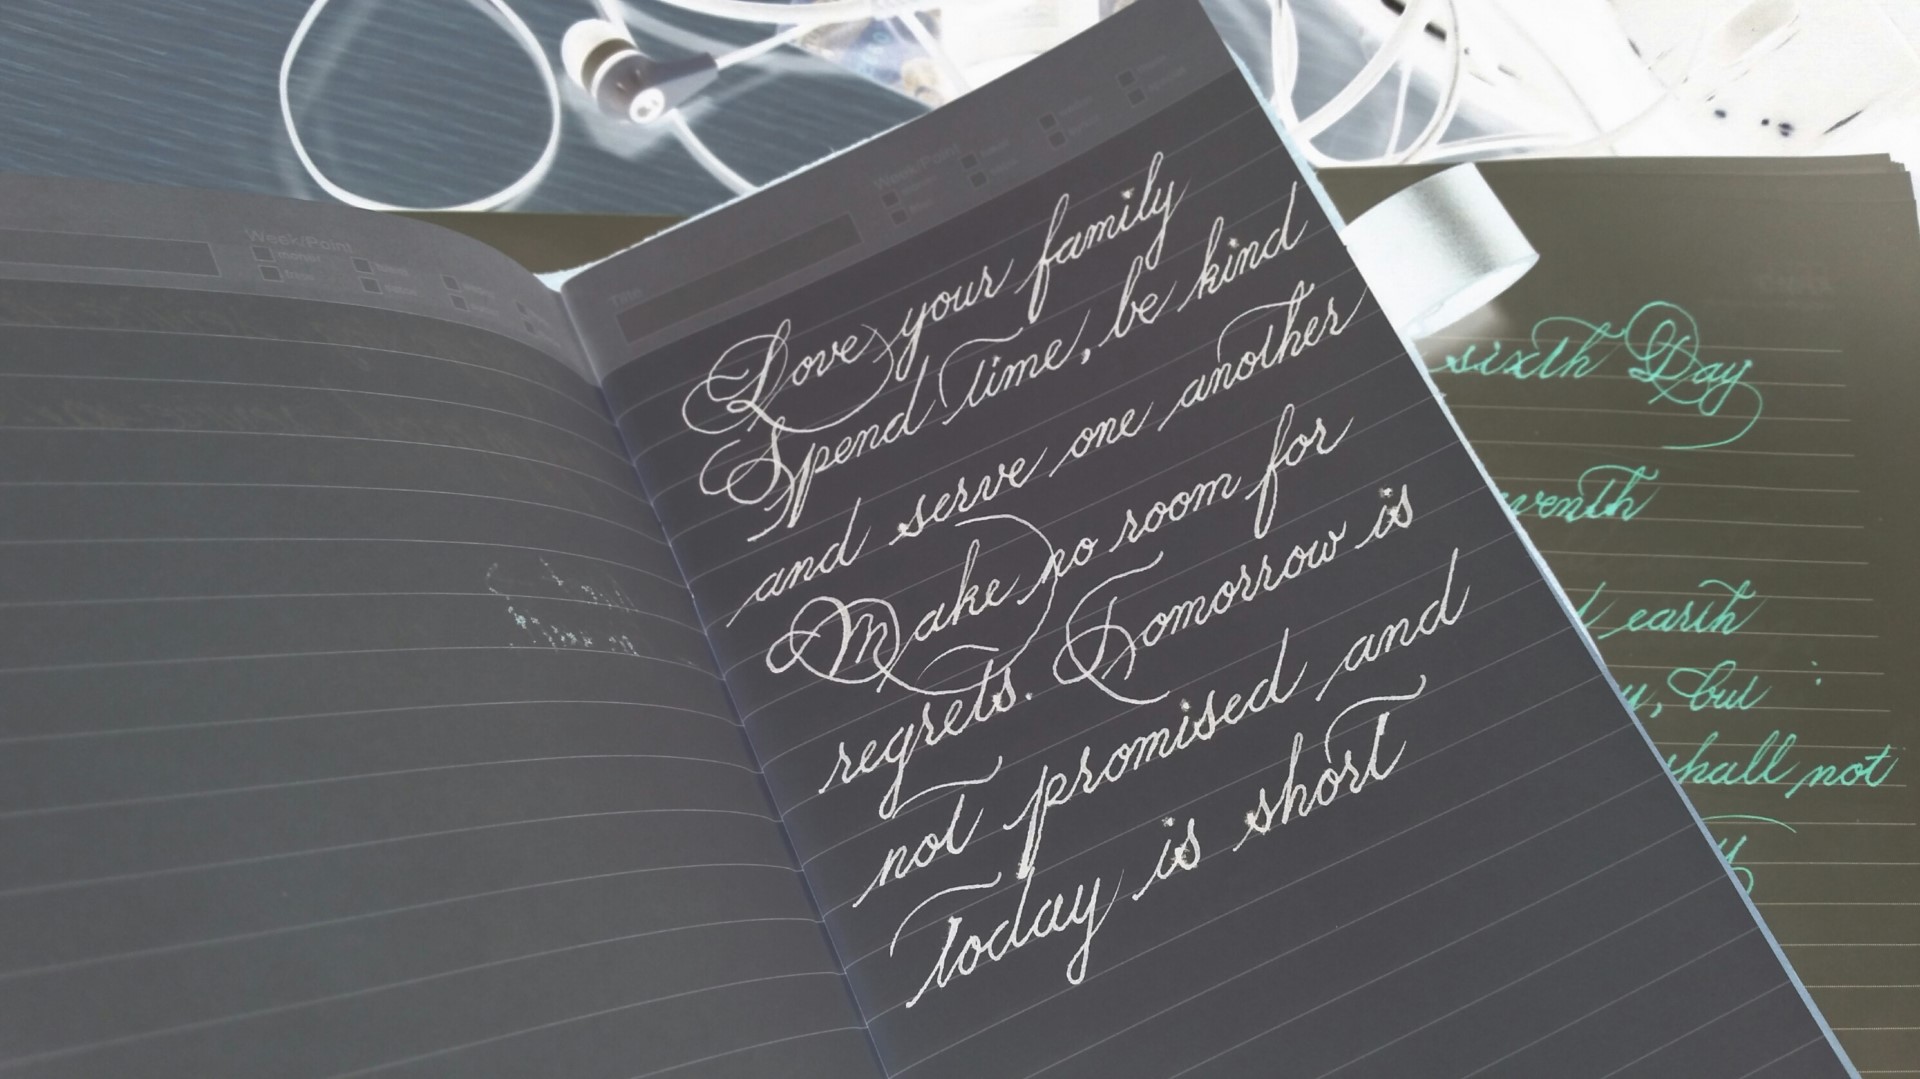 Week/Point
Title
Week/Point
Love your family
Spend time, be kind
and serve one another
Make no room for
regrets. Tomorrow is
not promised and
Today is short
sixth Day
venth
earth
, but
shall not